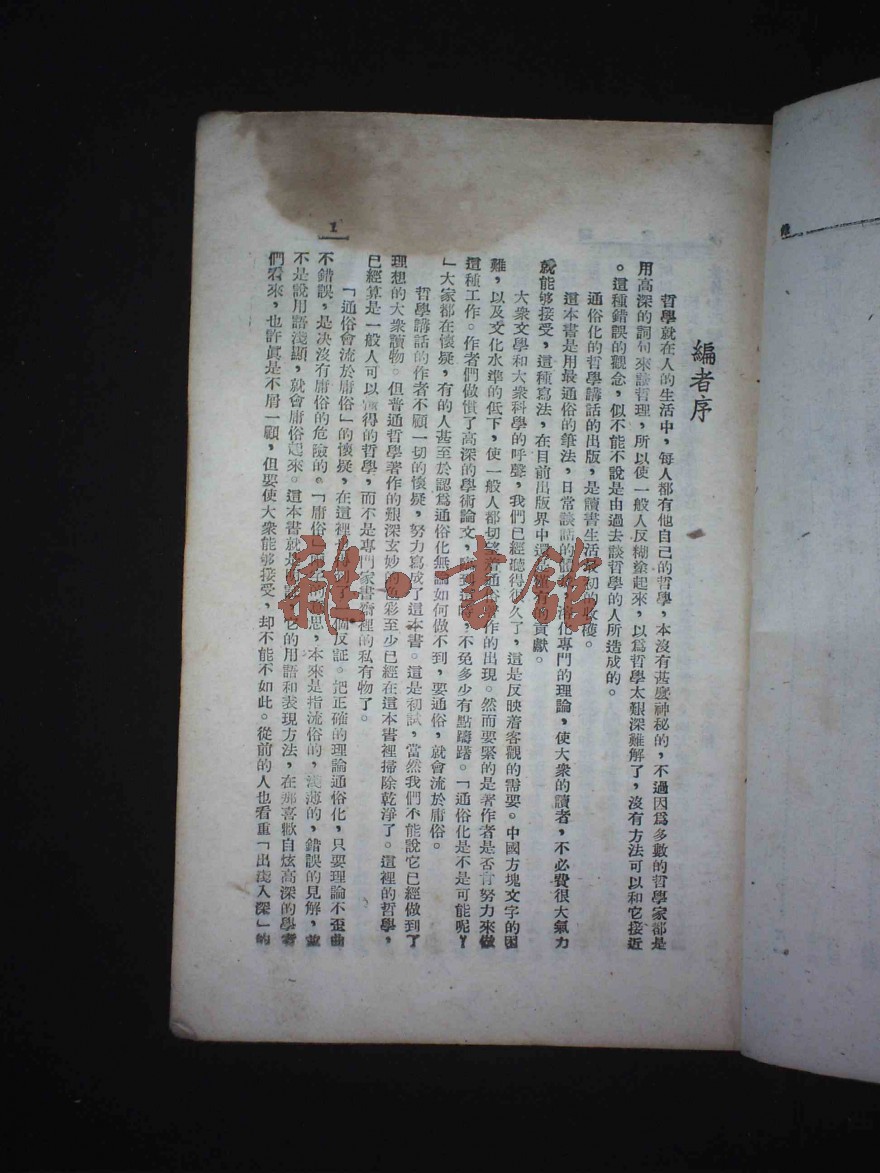 編者序
哲學就在人的生活中，每人都有他自己的哲學，本沒有甚麼神秘的，不過因爲多數的哲學家都是
用高深的詞句來談哲理，所以使一般人反糊塗起來，以爲哲學太艱深難解了，沒有方法可以和它接近
。這種錯誤的觀念，似不能不說是由過去談哲學的人所造成的。
通俗化的哲學講話的出版，是讀書生活最初的收穫。
這本書是用最通俗的筆法，日常談話的 化專門的理論，使大衆的讀者，不必費很大氣力
就能够接受，這種寫法，在目前出版界中還是 有的貢獻。
大衆文學和大衆科學的呼聲，我們已經聽得很久了，這是反映着客觀的需要。中國方塊文字的困
難，以及文化水準的低下，使一般人都切望着通俗著作的出現。然而要緊的是著作者是否肯努力來做
這種工作。作者們做慣了高深的學術論文， 不免多少有點躊躇。「通俗化是不是可能呢？
」大家都在懷疑，有的人甚至於認爲通俗化無論如何做不到，要通俗，就會流於庸俗。
哲學講話的作者不顧一切的懷疑，努力寫成了這本書。這是初試，當然我們不能說它已經做到了
理想的大衆讀物。但普通哲學著作的艱深玄妙的色彩至少已經在這本書裡掃除乾淨了。這裡的哲學，
已經算是一般人可以懂得的哲學，而不是專門家書齋裡的私有物了。
「通俗會流於庸俗」的懷疑，在這裡 個反証。把正確的理論通俗化，只要理論不歪曲
不錯誤，是決沒有庸俗的危險的。「庸俗」 思，本來是指流俗的，淺薄的，錯誤的見解，並
不是說用語淺顯，就會庸俗起來。這本書就是 它的用語和表現方法，在那喜歡自炫高深的學者
們看來，也許眞是不屑一顧，但要使大衆能够接受，却不能不如此。從前的人也看重「出淺入深」的
1
雜·書館